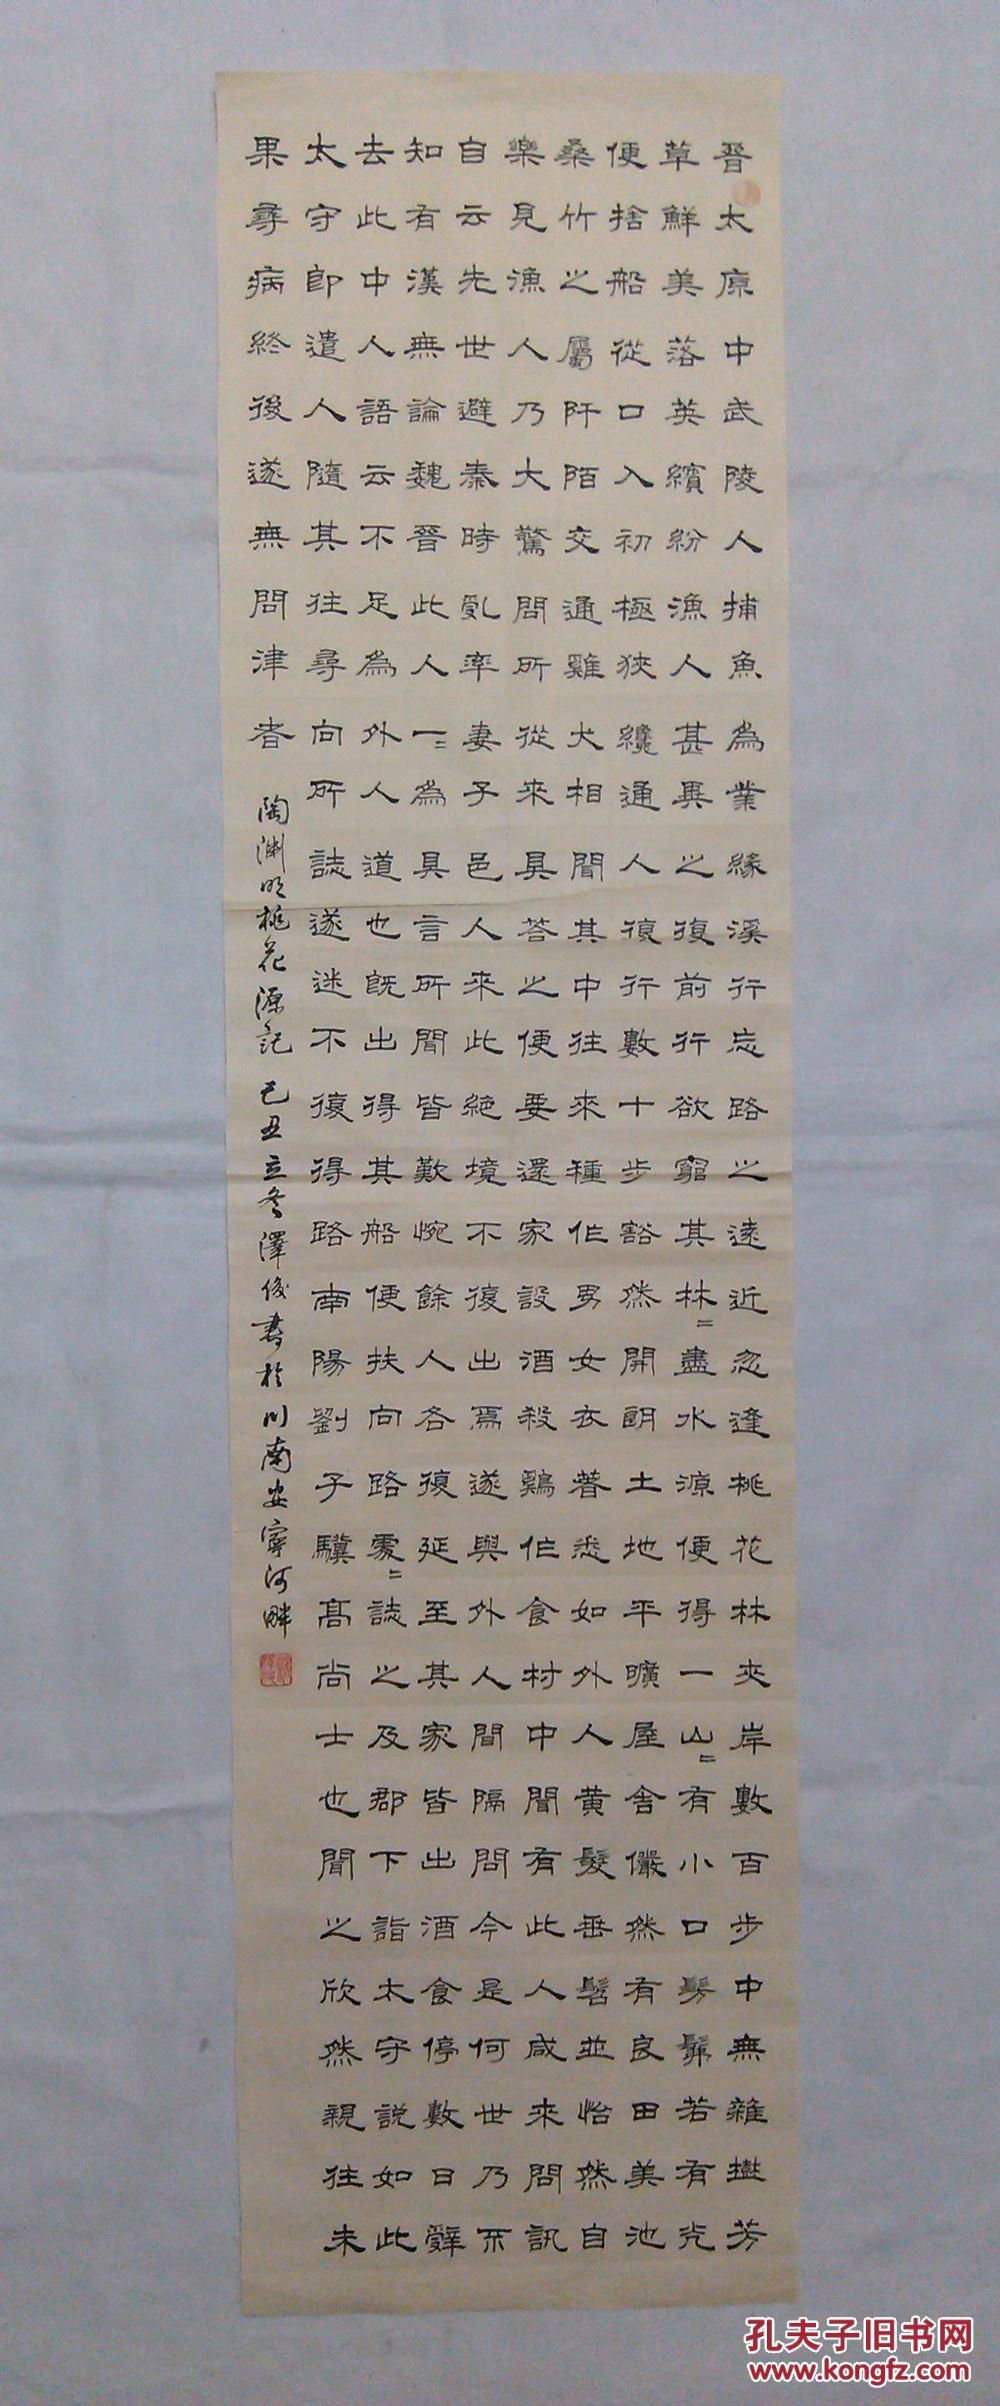 晉太原中武陵人捕魚為業緣溪行忘路之遠近忽逢桃花林夾岸數百步中無雜樹芳
草鮮美落英繽紛漁人甚異之復前行欲窮其林〻盡水源便得一山〻有小口髣髴若有光
便捨船從口入初極狹纔通人復行數十步豁然開朗土地平曠屋舍儼然有良田美池
桑竹之屬阡陌交通雞犬相聞其中往來種作男女衣著悉如外人黃髮垂髫並怡然自
樂見漁人乃大驚問所從來具答之便要還家設酒殺鷄作食村中聞有此人咸來問訊
自云先世避秦時亂率妻子邑人來此絕境不復出焉遂與外人間隔問今是何世乃不
知有漢無論魏晉此人一〻為具言所聞皆歎惋餘人各復延至其家皆出酒食停數日辭
去此中人語云不足為外人道也既出得其船便扶向路處〻誌之及郡下詣太守說如此
太守即遣人隨其往尋向所誌遂迷不復得路南陽劉子驥高尚士也聞之欣然親往未
果尋病終後遂無問津者
陶渊明桃花源記 己丑立冬澤俊書於川南安寧河畔
孔夫子旧书网
www.kongfz.com